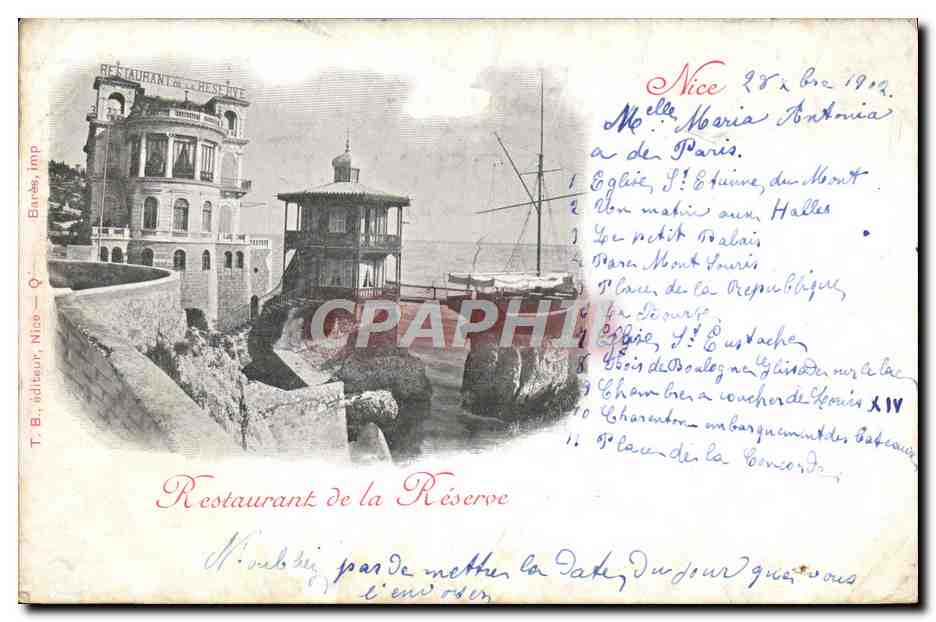 RESTAURANT DE LA RESERVE
Nice 28 xbre 1902.
Melle Maria Antonia
a de Paris.
1 Eglise St Etienne du Mont
2 Un matin aux Halles
3 Le petit Palais
4 Parc Mont Souris
5 Place de la Republique
6 La Bourse
7 Eglise St Eustache
8 Bois de Boulogne Glissades sur le lac
9 Chambre a coucher de Louis XIV
10 Charenton embarquement des bateaux
11 Place de la Concorde
CPAPHIL
Restaurant de la Réserve
N'oubliez pas de mettre la date du jour que vous
l'envoyez
T. B., éditeur, Nice — Q Barès, imp